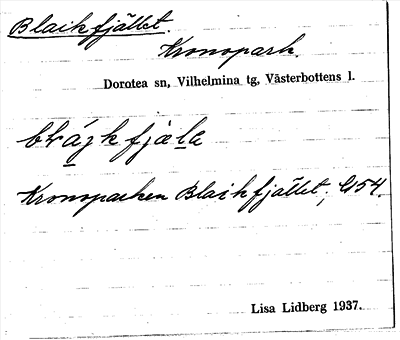 Blaikfjället.
Kronopark.
Dorotea sn, Vilhelmina tg, Västerbottens l.
Kronoparken Blaikfjället,
Lisa Lidberg 1937.